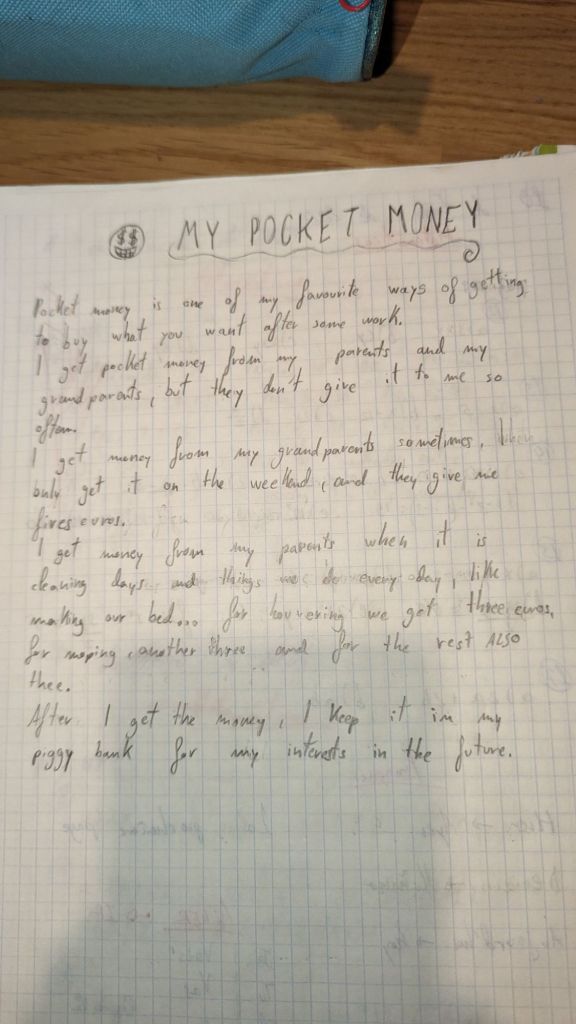 MY POCKET MONEY
Pocket money is one of my favourite ways of getting
to buy what you want after some work.
I get pocket money from my parents and my
grandparents, but they don't give it to me so
often.
I get money from my grandparents sometimes,
only get it on the weekend, and they give me
fives euros.
I get money from my parents when it is
cleaning days and things we do every day, like
making our bed... for hovering we get three euros,
for moping, another three and for the rest ALSO
thee.
After I get the money, I keep it in my
piggy bank for my interests in the future.